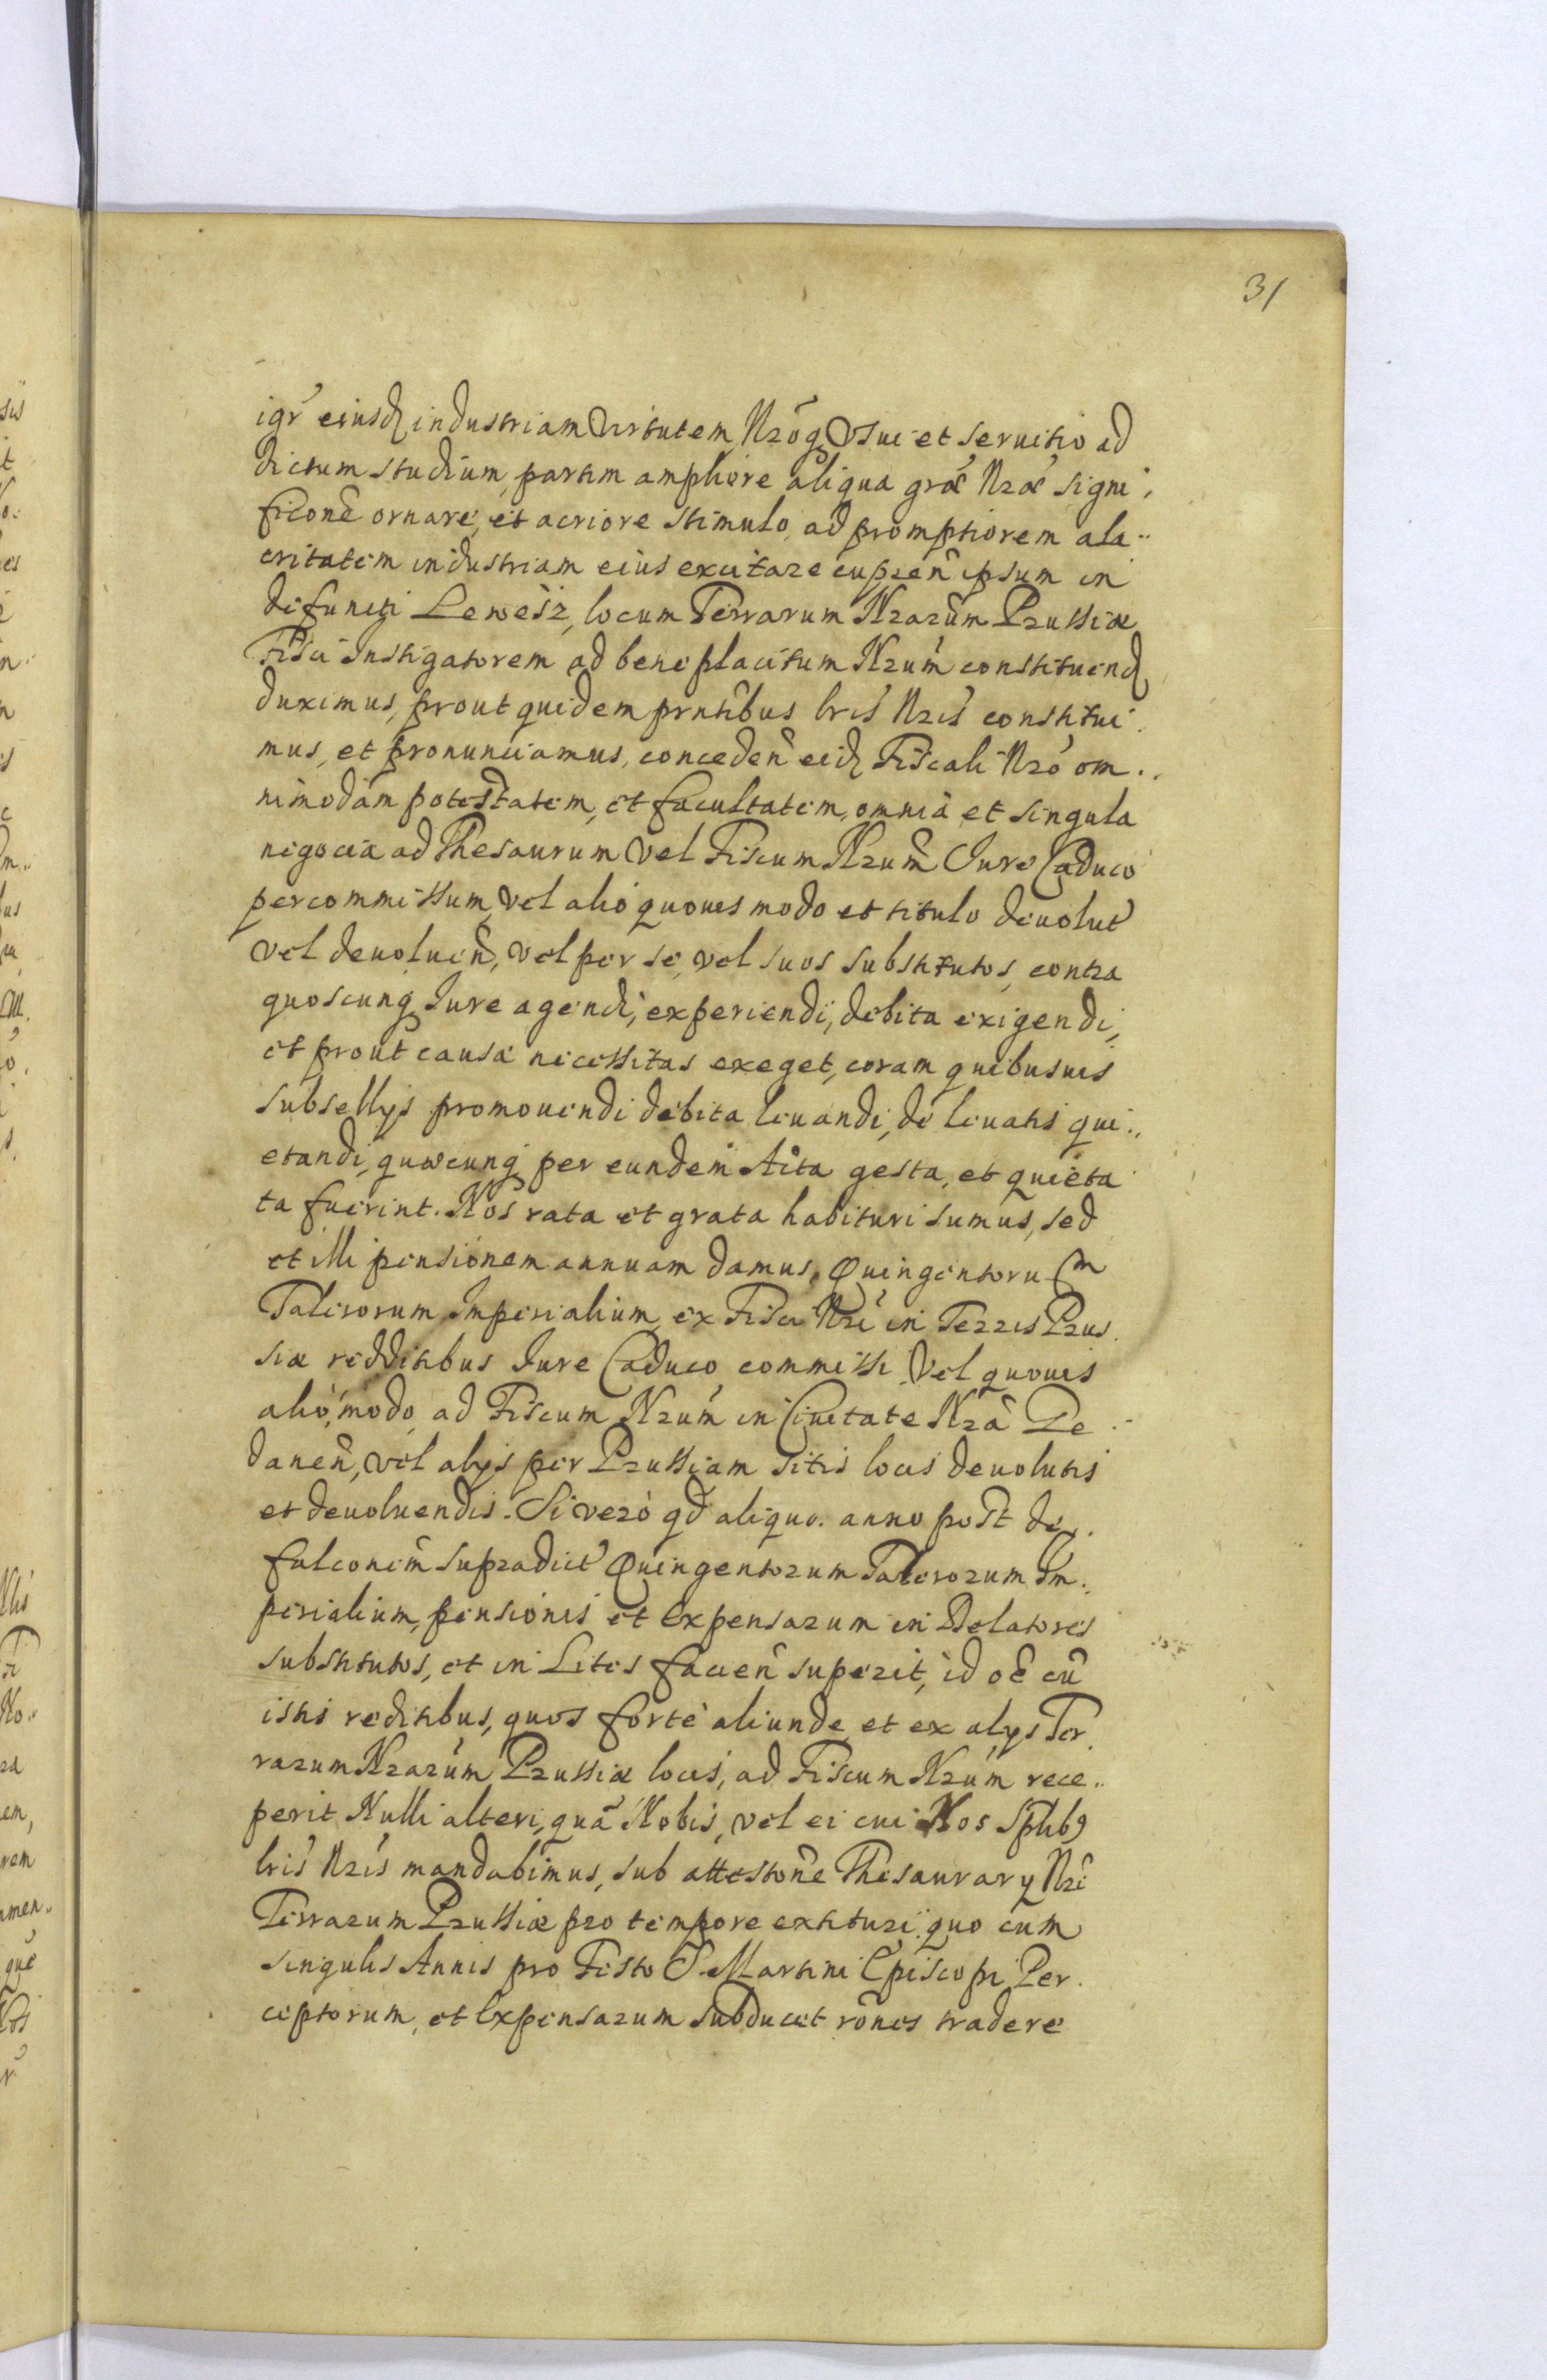 31
igr eiusdq industriam Virtutem Nroq Usui et seruitio ad
dictum studium, partim ampliore aliqua græ Nræ signi,
ficone ornare, et acriore stimulo, ad promptiorem ala..
critatem industriam eius excitare cupien ipsum in
defuncti locum Terrarum Nrarum Prussiæ
Fisci Instigatorem ad beneplacitum Nrum constituend
duximus, prout quidem prntibus lris Nris constitui.
mus, et pronunciamus, conceden eidq Fiscali Nro om..
nimodam potestatem, et facultatem, omnia et singula
negocia ad Thesaurum Vel Fiscum Nrum Iure Caduco
per commissum, Vel alio quouis modo et titulo deuolut
vel deuoluen, Vel per se, vel suos substitutos, contra
quoscunq Iure agendi, experiendi, debita exigendi,
et prout causæ necessitas exeget, coram quibusuis
subsellys promouendi debita leuandi, de leuatis qui..
etandi, quæcunq per eundem Acta gesta, et quieta
ta fuerint. Nos rata et grata habituri sumus, sed
et illi pensionem annuam damus, Quingentorum
Talerorum Imperialium, ex Fisci Nri in Terris Prus.
siæ redditibus Iure Caduco commissi Vel quouis
alio, modo, ad Fiscum Nrum in Ciuitate Nra Ge
danen, vel alys per Prussiam sitis locis deuolutis
et deuoluendis. Si vero qd aliquo. anno post de..
falconem supradict Quingentorum Talerorum Im.
perialium, pensionis et Expensarum in Delatores
substitutos, et in Lites facien superit, id oe cu
istis reditibus, quos forte aliunde et ex alys Ter
rarum Nrarum Prussiæ locis, ad Fiscum Nrum rece..
perit Nulli alteri, qua Nobis, vel ei cui Nos Splib9
lris Nris mandabimus, sub attestone Thesaurary Nri
Terrarum Prussiæ pro tempore extituri. quo cum
singulis Annis pro Festo S. Martini Episcopi Per.
ceptorum, et Expensarum subducet rones tradere